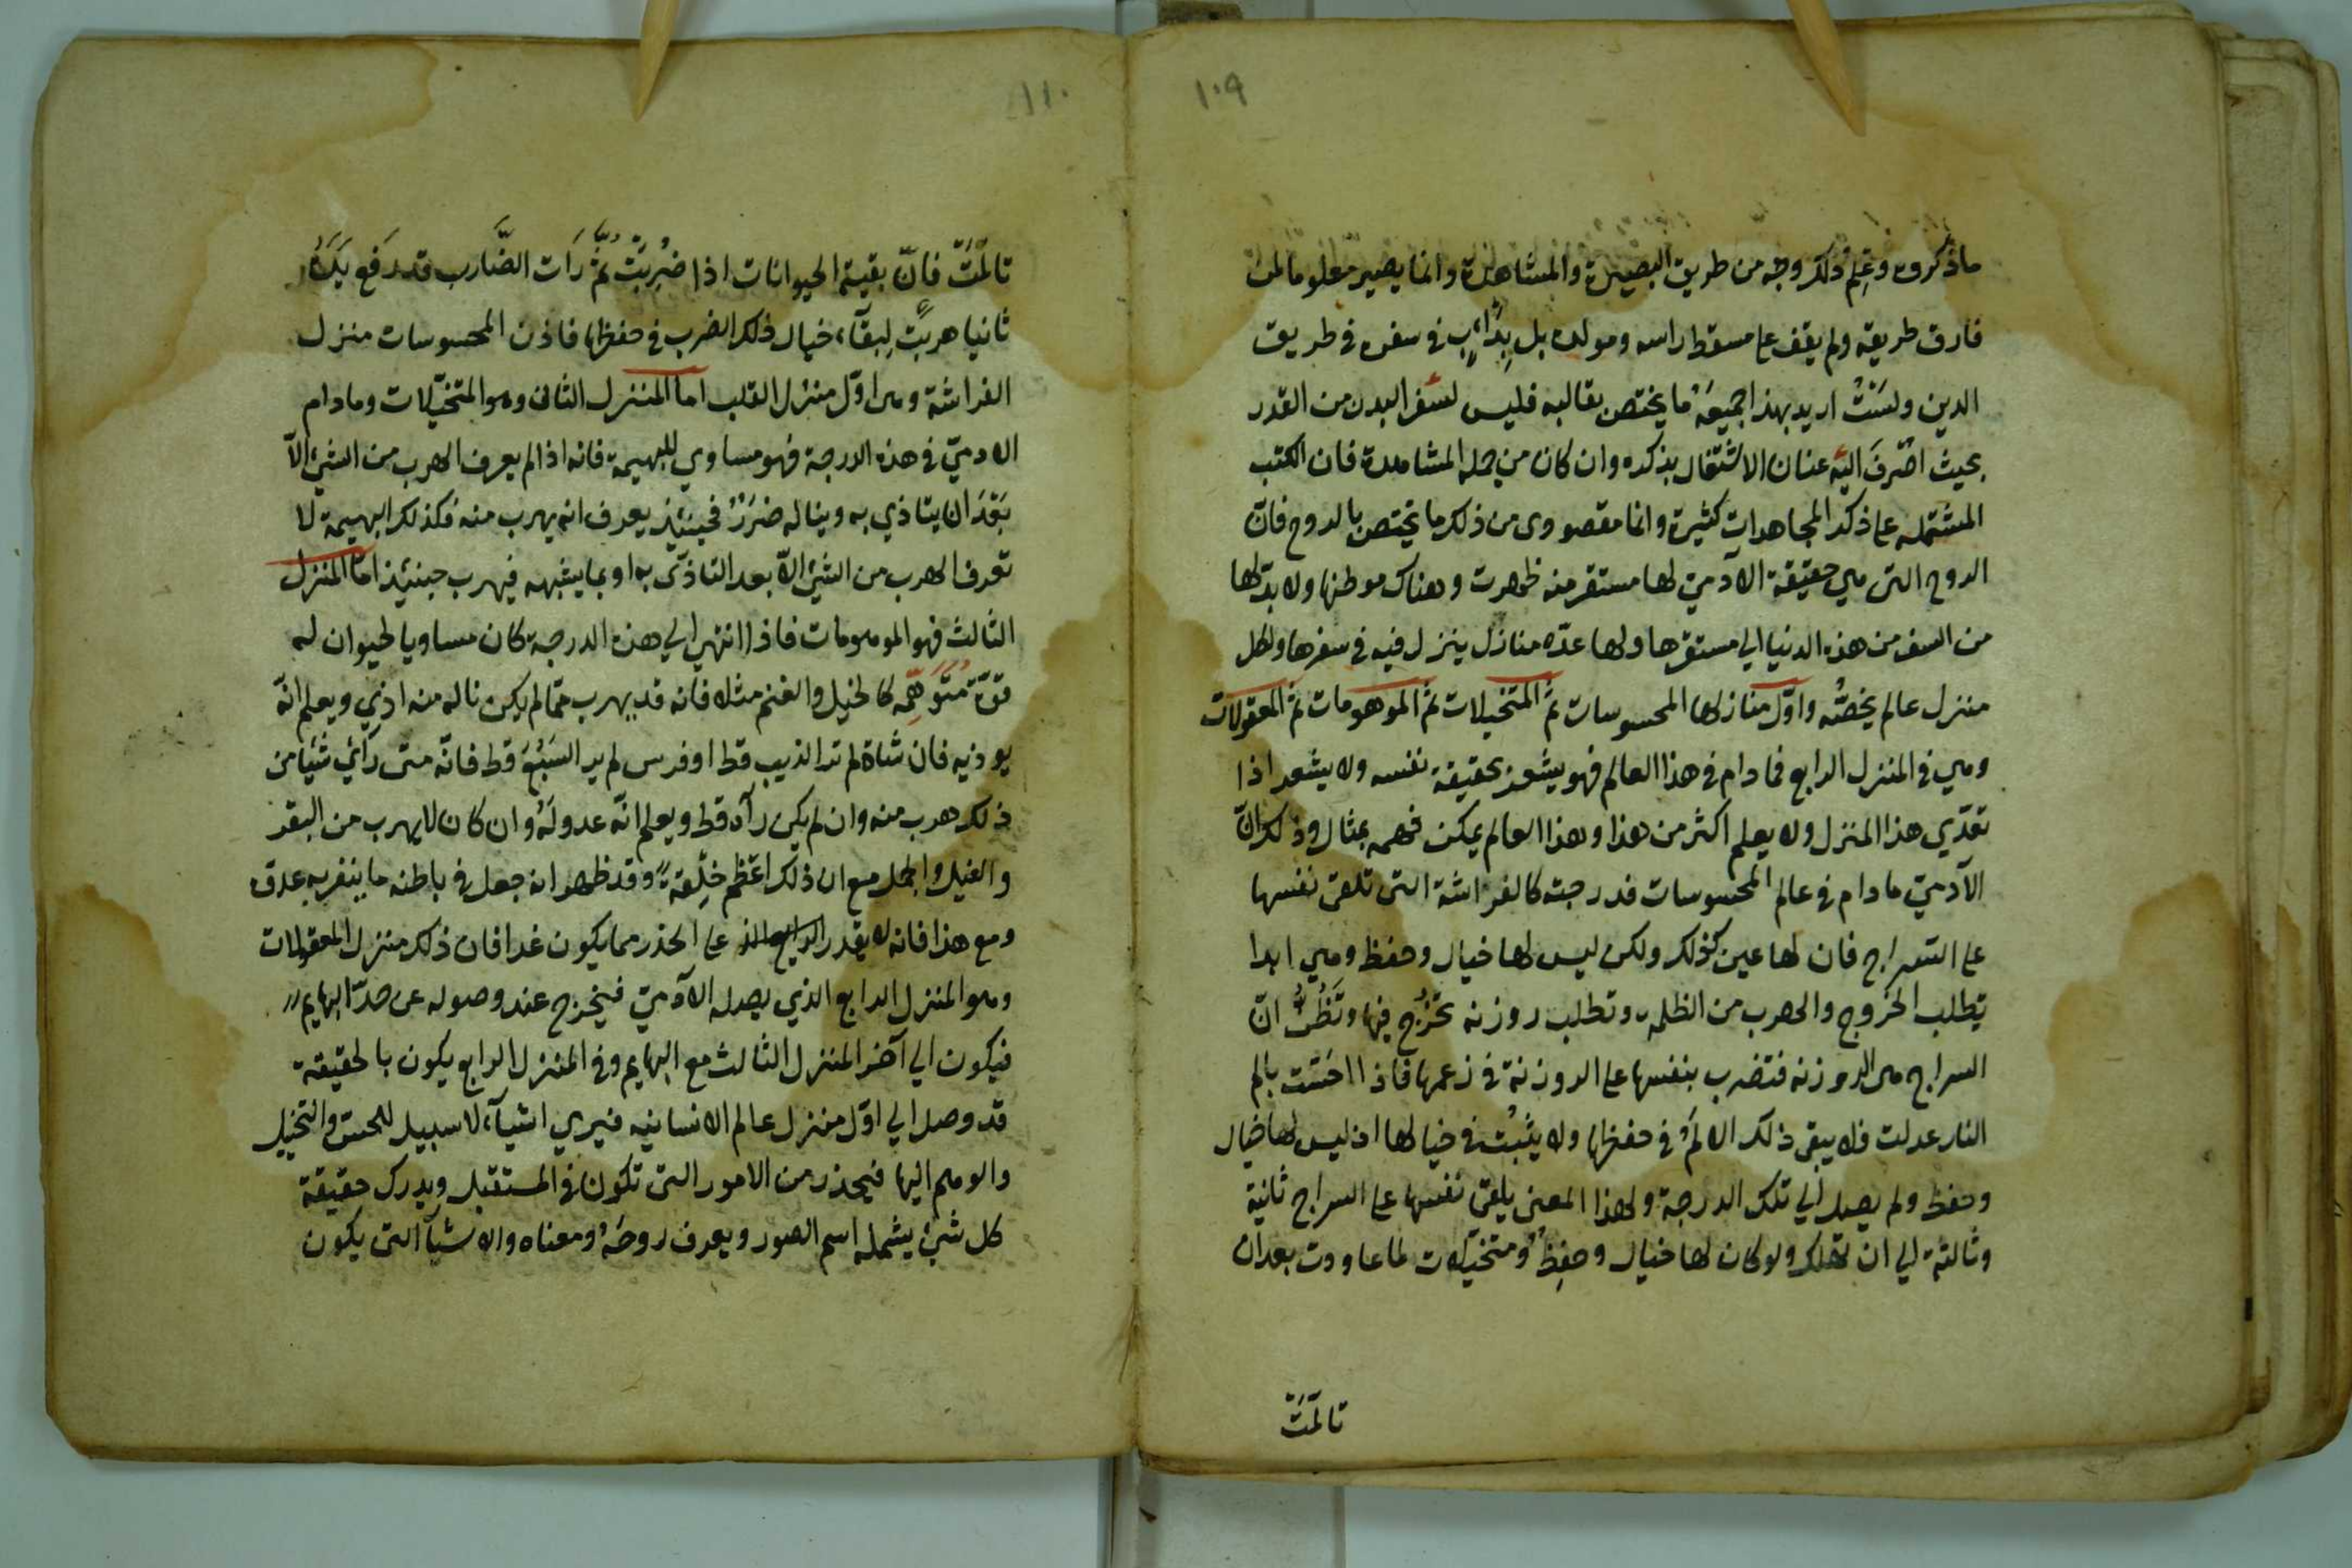 ١٠٩
ما ذكروه وعلم ذلك وجه من طريق البصيرة والمشاهدة وانما يصير معلوما لمن
فارق طريقه ولم يقف على مسقط راسه ومولده بل بدأ في سفره في طريق
الدين ولست اريد بهذا جميعه ما يختص بقالبه فليس لسفر البدن من القدر
بحيث اصرف اليه عنان الاشتغال بذكره وان كان من جملة المشاهدة فان الكتب
المشتمله على ذكر المجاهدات كثيرة وانما مقصودى من ذلك ما يختص بالروح فانّ
الروح التى هي حقيقة الآدميّ لها مستقر منه ظهرت وهناك موطنها ولا بدّ لها
من السفر من هذه الدنيا الي مستقرها ولها عدّه منازل ينزل فيه في سفرها ولكل
منزل عالم يخصّه واوّل منازلها المحسوسات ثمّ المتخيلات ثمّ الموهومات ثمّ المعقولات
وهي في المنزل الرابع فما دام في هذا العالم فهو يشعر بحقيقة نفسه ولا يشعر اذا
تعدّي هذا المنزل ولا يعلم اكثر من هذا وهذا العالم يمكن فهمه بمثال وذلك انّ
الآدميّ ما دام في عالم المحسوسات فدرجته كالفراشة التى تلقى نفسها
على السراج فان لها عين كذلك ولكن ليس لها خيال وحفظ وهي ابدا
تطلب الخروج والهرب من الظلمه وتطلب روزنه تخرج فيها وتظنّ انّ
السراج هى الروزنه فتضرب بنفسها على الروزنة في زعمها فاذا احسّت بالم
النار عدلت فلا يبقى ذلك الالم في حفظها ولا يثبت في خيالها اذ ليس لها خيال
وحفظ ولم يصل الي تلك الدرجة ولهذا المعنى يلقى نفسها على السراج ثانية
وثالثة الي ان تهلك ولو كان لها خيال وحفظ ومتخيّلات لما عاودت بعد ان
تالمّت
١١٠
تالمّت فانّ بقية الحيوانات اذا ضُرِبَت ثمّ رَات الضّارب قد رفع يَدَهُ
ثانيا هربَت لِبقآء خيال ذلك الضرب في حفظها فاذن المحسوسات منزل
الفراشة وهى اوّل منزل القلب اما المنزل الثانى وهو المتخيّلات وما دام
الادميّ في هذه الدرجة فهو مساوي للبهيمة فانه اذا لم يعرف الهرب من الشئ الّا
بَعْدَ ان يتاذي به ويناله ضرَرٌ فحينئذ يعرف انه يهرب منه فكذلك البهيمة لا
تعرف الهرب من الشئ الّا بعد التاذّى به او بما يشبهه فيهرب حينئذ امّا المنزل
الثالث فهو الموهومات فاذا انتهى الي هذه الدرجة كان مساويا لحيوان له
قوّة مُتَوَهِّمه كالخيل والغنم مثلا فانه قد يهرب ممّا لم يكن ناله منه اذي ويعلم انّه
يوذيه فان شاة لم تر الذيب قط او فرس لم ير السَبُعَ قط فانّه متى رآئ شيَا من
ذلك هرب منه وان لم يكن رآه قط ويعلم انّه عدو لَهُ وان كان لا يهرب من البقر
والفيل والجمل مع ان ذلك اعظم خِلْقة وقد ظهر انه جعل في باطنه ما ينفر به عدوّه
ومع هذا فانه لا يقدر على الحذر مما يكون غدا فان ذلك منزل المعقولات
وهو المنزل الرابع الذي يصله الآدميّ فيخرج عند وصوله عن حدّ البهايم
فيكون الي آخر المنزل الثالث مع البهايم وفى المنزل الرابع يكون بالحقيقة
قد وصل الي اوّل منزل عالم الانسانيه فيري اشيآء لا سبيل للحسّ والتخيل
والوهم اليها فيحذر من الامور التى تكون في المستقبل ويدرك حقيقة
كل شئ يشمله اسم الصور ويعرف روحَهُ ومعناه والاشيآ التى يكون